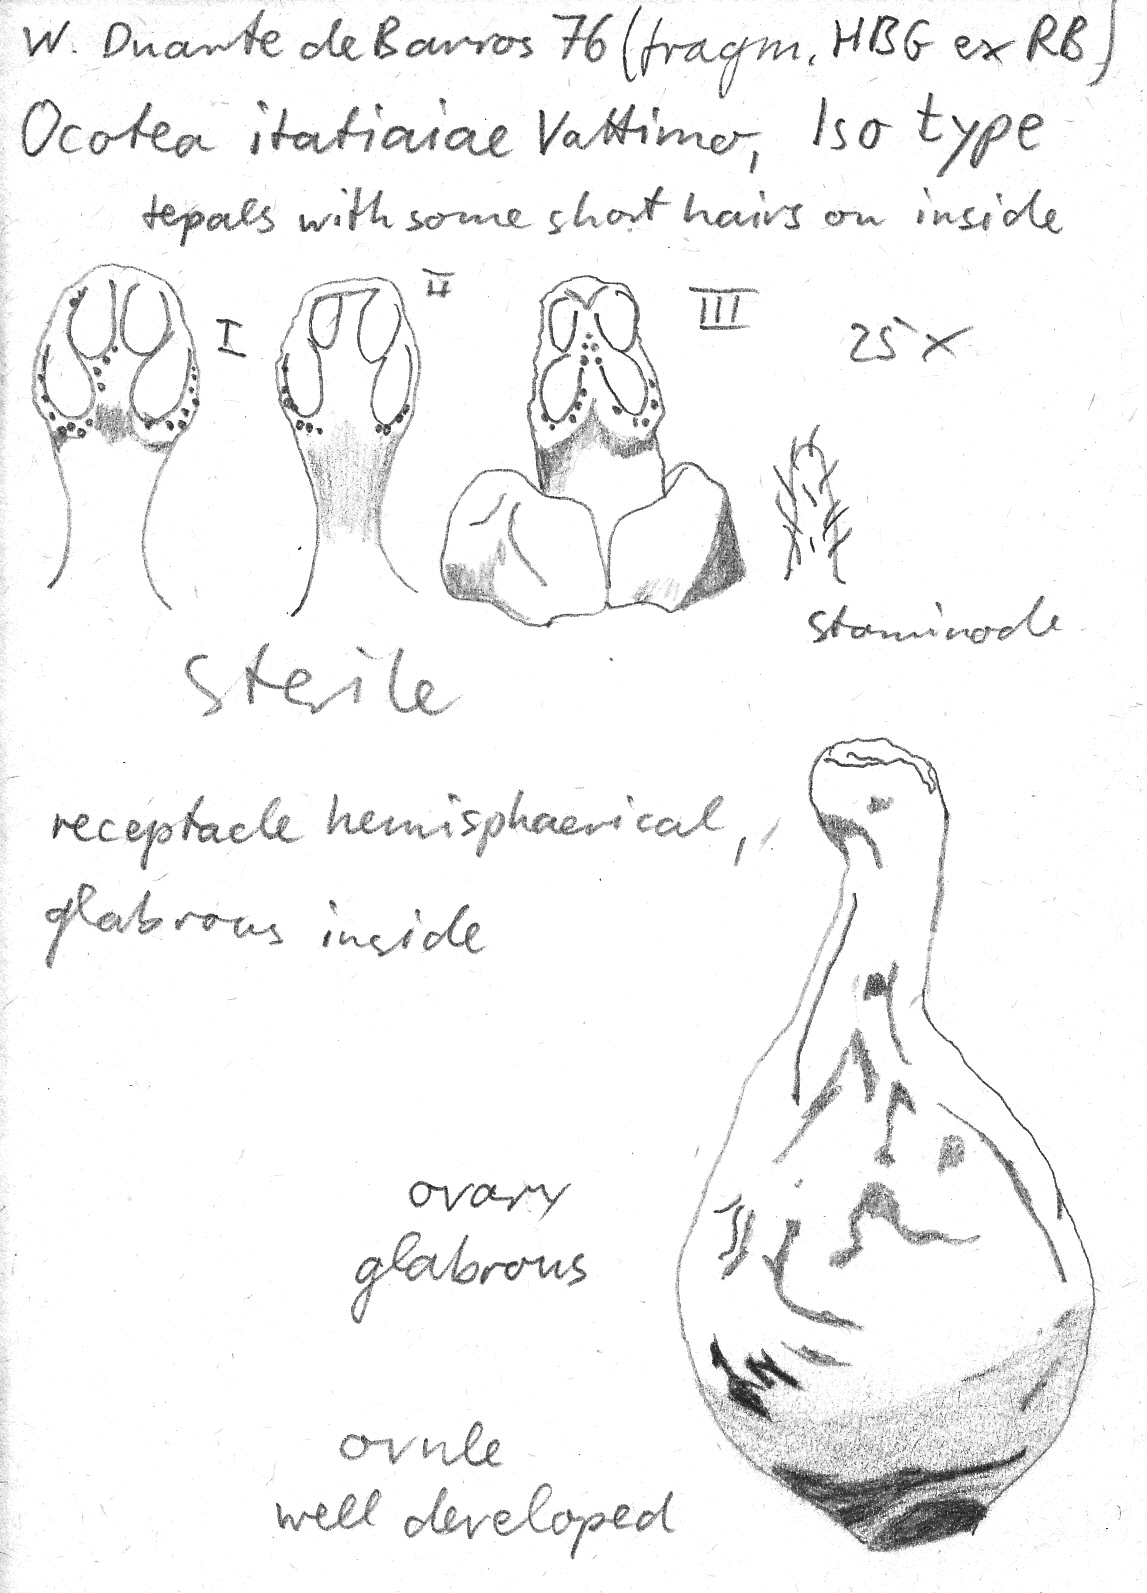 W. Duarte de Barros 76 (fragm. HBG ex RB)
Ocotea itatiaiae Vattimo, Isotype
tepals with some short hairs on inside
I
II
III
25 x
staminode
sterile
receptacle hemisphaerical,
glabrous inside
ovary
glabrous
ovule
well developed